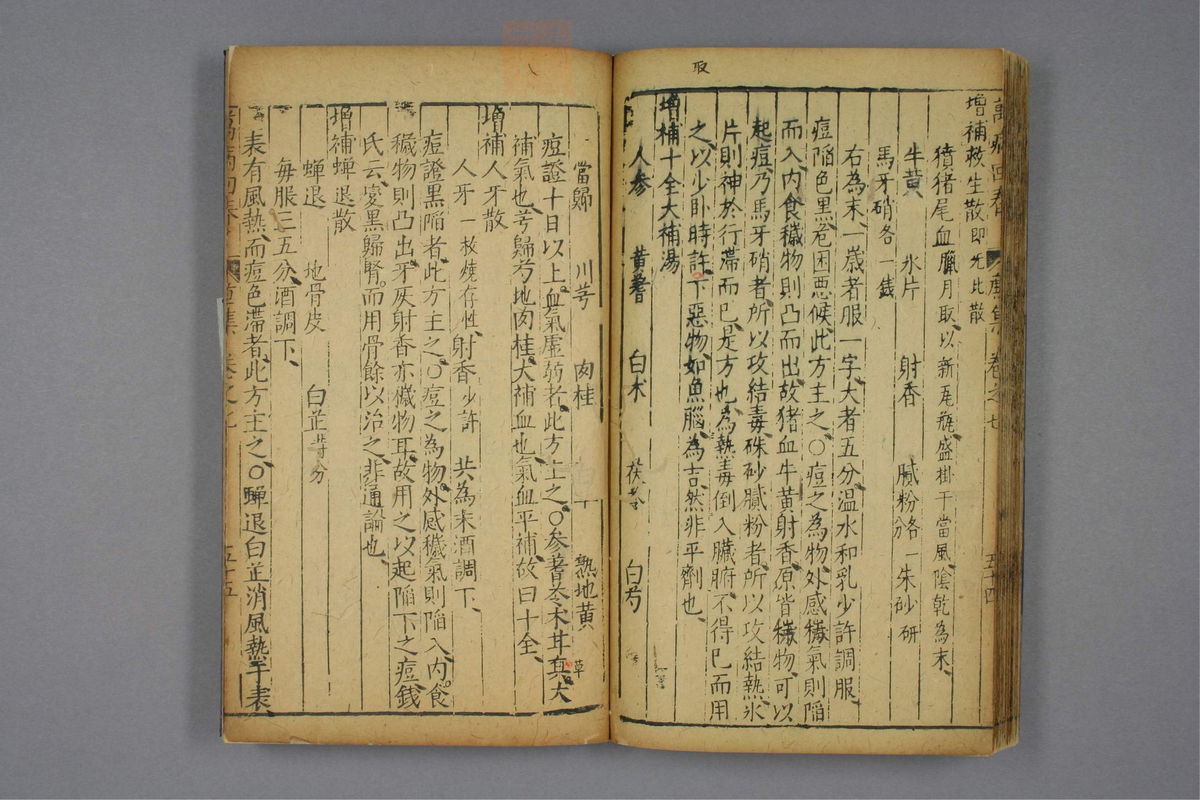 取
萬病回春 卷之七 五十四
增補救生散即九此散
猪尾血臘月取以新瓦瓶盛掛于當風陰乾為末
牛黃 氷片 射香 膩粉各一分 朱砂研
馬牙硝各一錢
右為末一歲者服一字大者五分温水和乳少許調服
痘陷色黑危困惡候此方主之○痘之為物外感穢氣則陷
而入內食穢物則凸而出故猪血牛黃射香原皆穢物可以
起痘乃馬牙硝者所以攻結毒硃砂膩粉者所以攻結熱氷
片則神於行滯而已是方也為熱毒倒入臟腑不得已而用
之以少卧時許下惡物如魚腦為吉然非平劑也
增補十全大補湯
人參 黃蓍 白术 茯苓 白芍
當歸 川芎 肉桂 熟地黃 草
痘證十日以上血氣虛弱者此方主之○參蓍苓术甘真大
補氣也芎歸芍地肉桂大補血也氣血平補故曰十全
增補人牙散
人牙一枚燒存性 射香少許 共為末酒調下
痘證黑陷者此方主之○痘之為物外感穢氣則陷入內食
穢物則凸出牙灰射香亦穢物耳故用之以起陷下之痘錢
氏云變黑歸腎而用骨餘以治之非通論也
增補蟬退散
蟬退 地骨皮 白芷等分
每服三五分酒調下
表有風熱而痘色滯者此方主之○蟬退白芷消風熱于表
萬病回春 卷之七 五十五